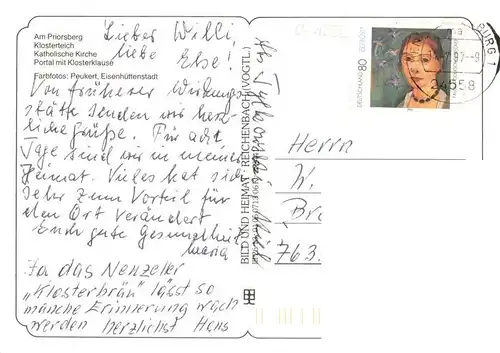 Am Priorsberg
Klosterteich
Katholische Kirche
Portal mit Klosterklause
Farbfotos: Peukert, Eisenhüttenstadt
Lieber Willi,
liebe Else!
Von früherer Wirkungs-
stätte senden wir herz-
liche Grüße. Für acht
Tage sind wir in meiner
Heimat. Vieles hat sich
sehr zum Vorteil für
den Ort verändert
Euch gute Gesundheit
Maria
Ja das Nenzeller
„Klosterbräu" lässt so
manche Erinnerung wach
werden herzlichst Hans
BILD UND HEIMAT · REICHENBACH (VOGTL.)
DEUTSCHLAND 80
EUROPA
BURG 1
97-9
24558
Herrn
W.
Br
763.